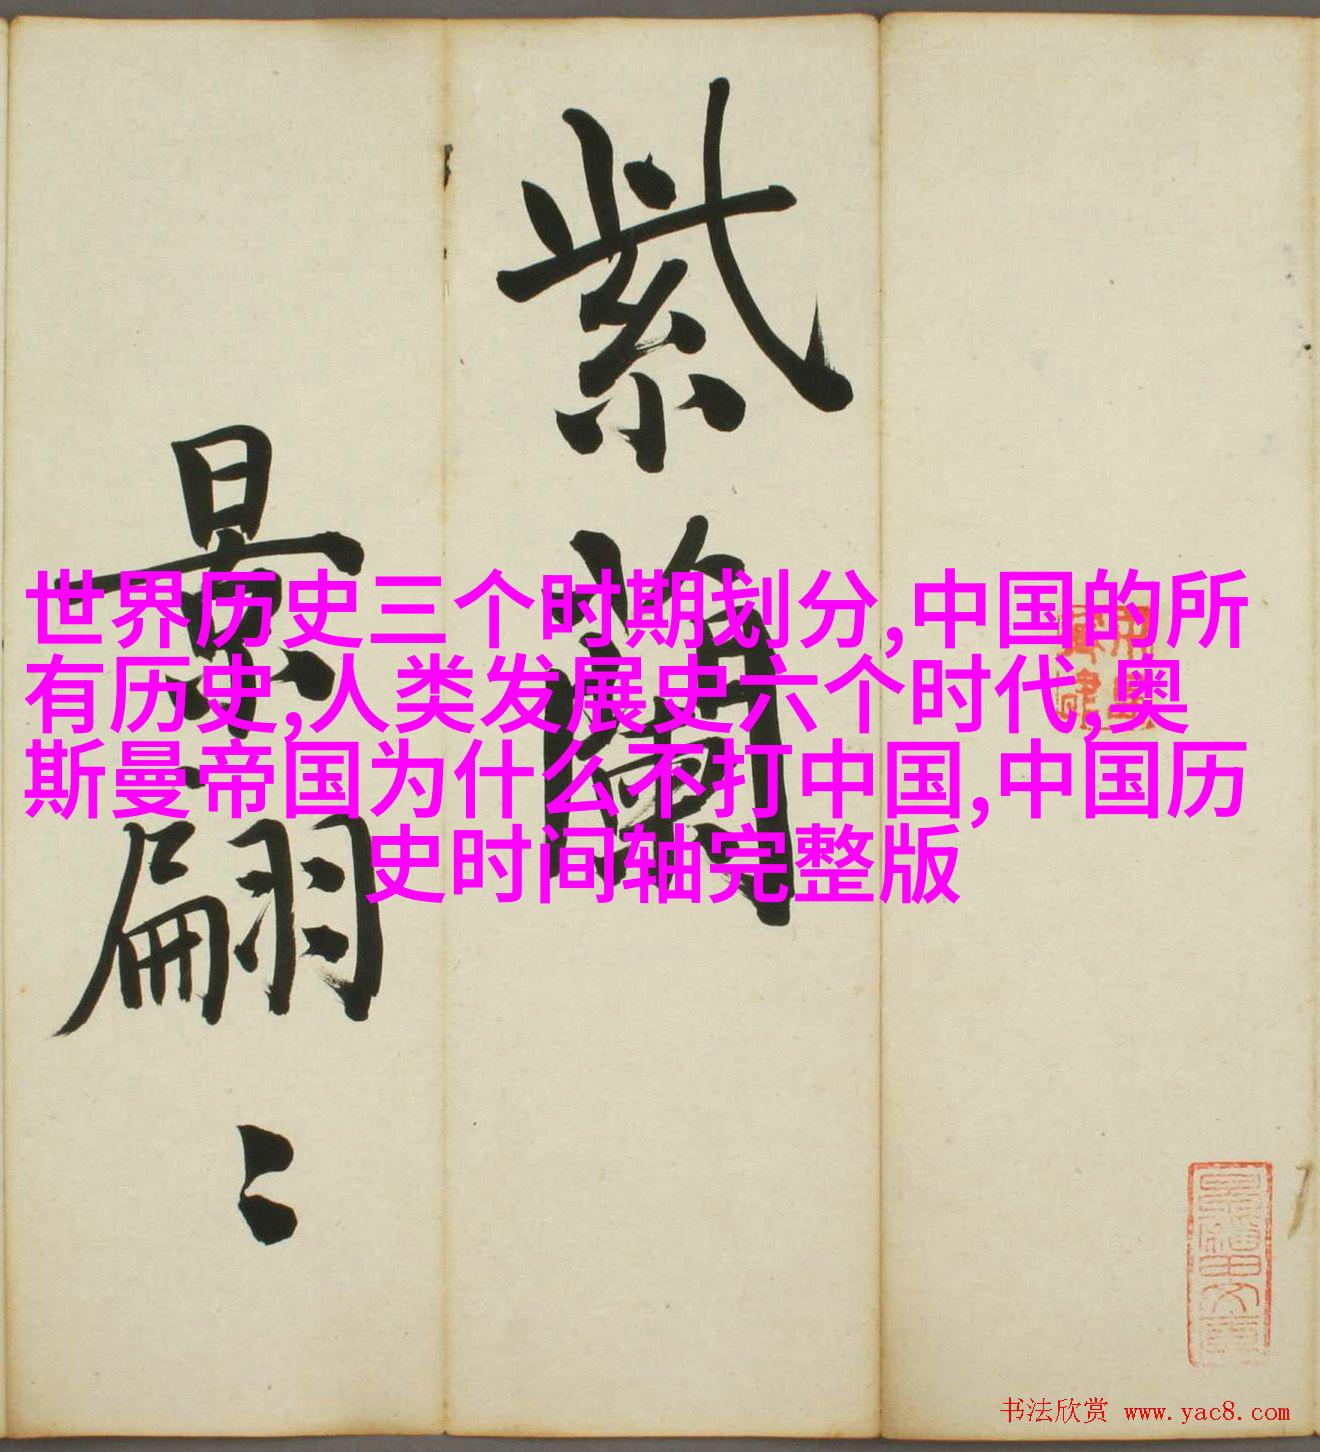 紫蘭
景翩〻
世界历史三个时期划分,中国的所
有历史,人类发展史六个时代,奥
斯曼帝国为什么不打中国,中国历
史时间轴完整版
书法欣赏 www.yac8.com